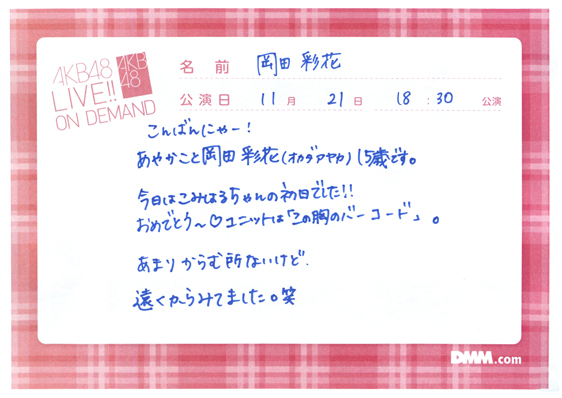 AKB48
LIVE!!
ON DEMAND
AKB
48
名 前 岡田 彩花
公演日 11月 21日 18:30 公演
こんばんにゃー!
あやかこと岡田彩花(オカダアヤカ)15歳です。
今日はこみはるちゃんの初日でした!!
おめでとう〜♡ユニットは「この胸のバーコード」。
あまりからむ所ないけど.
遠くからみてました。笑
DMM.com